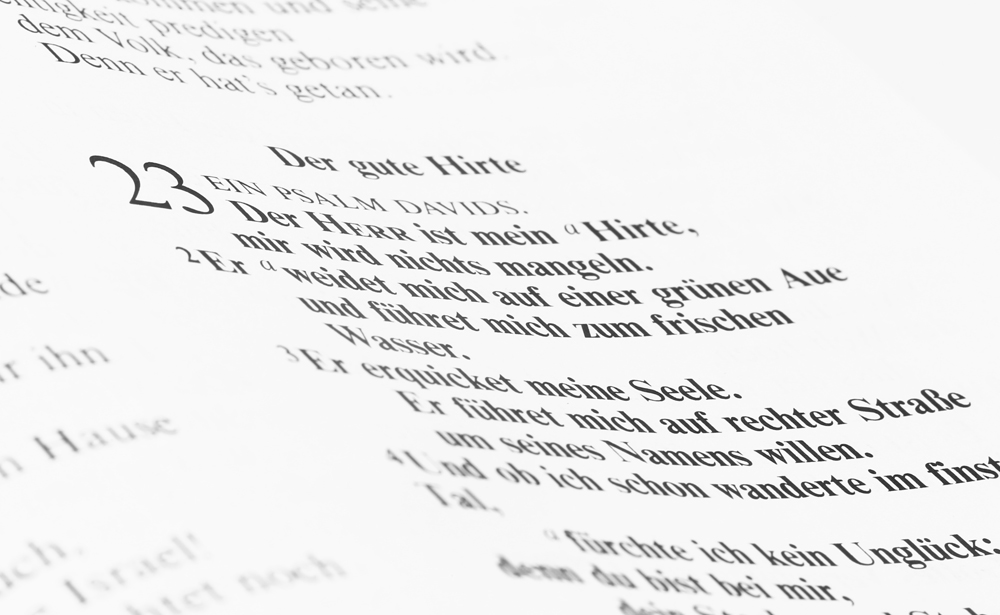 kommen und seine
predigen
dem Volk, das geboren wird.
Denn er hat's getan.
Der gute Hirte
23 EIN PSALM DAVIDS.
Der HERR ist mein a Hirte,
mir wird nichts mangeln.
2 Er a weidet mich auf einer grünen Aue
und führet mich zum frischen
Wasser.
3 Er erquicket meine Seele.
Er führet mich auf rechter Straße
um seines Namens willen.
4 Und ob ich schon wanderte im finst
Tal,
a fürchte ich kein Unglück;
denn du bist bei mir,
dein
ihn
Hause
Israel!
noch